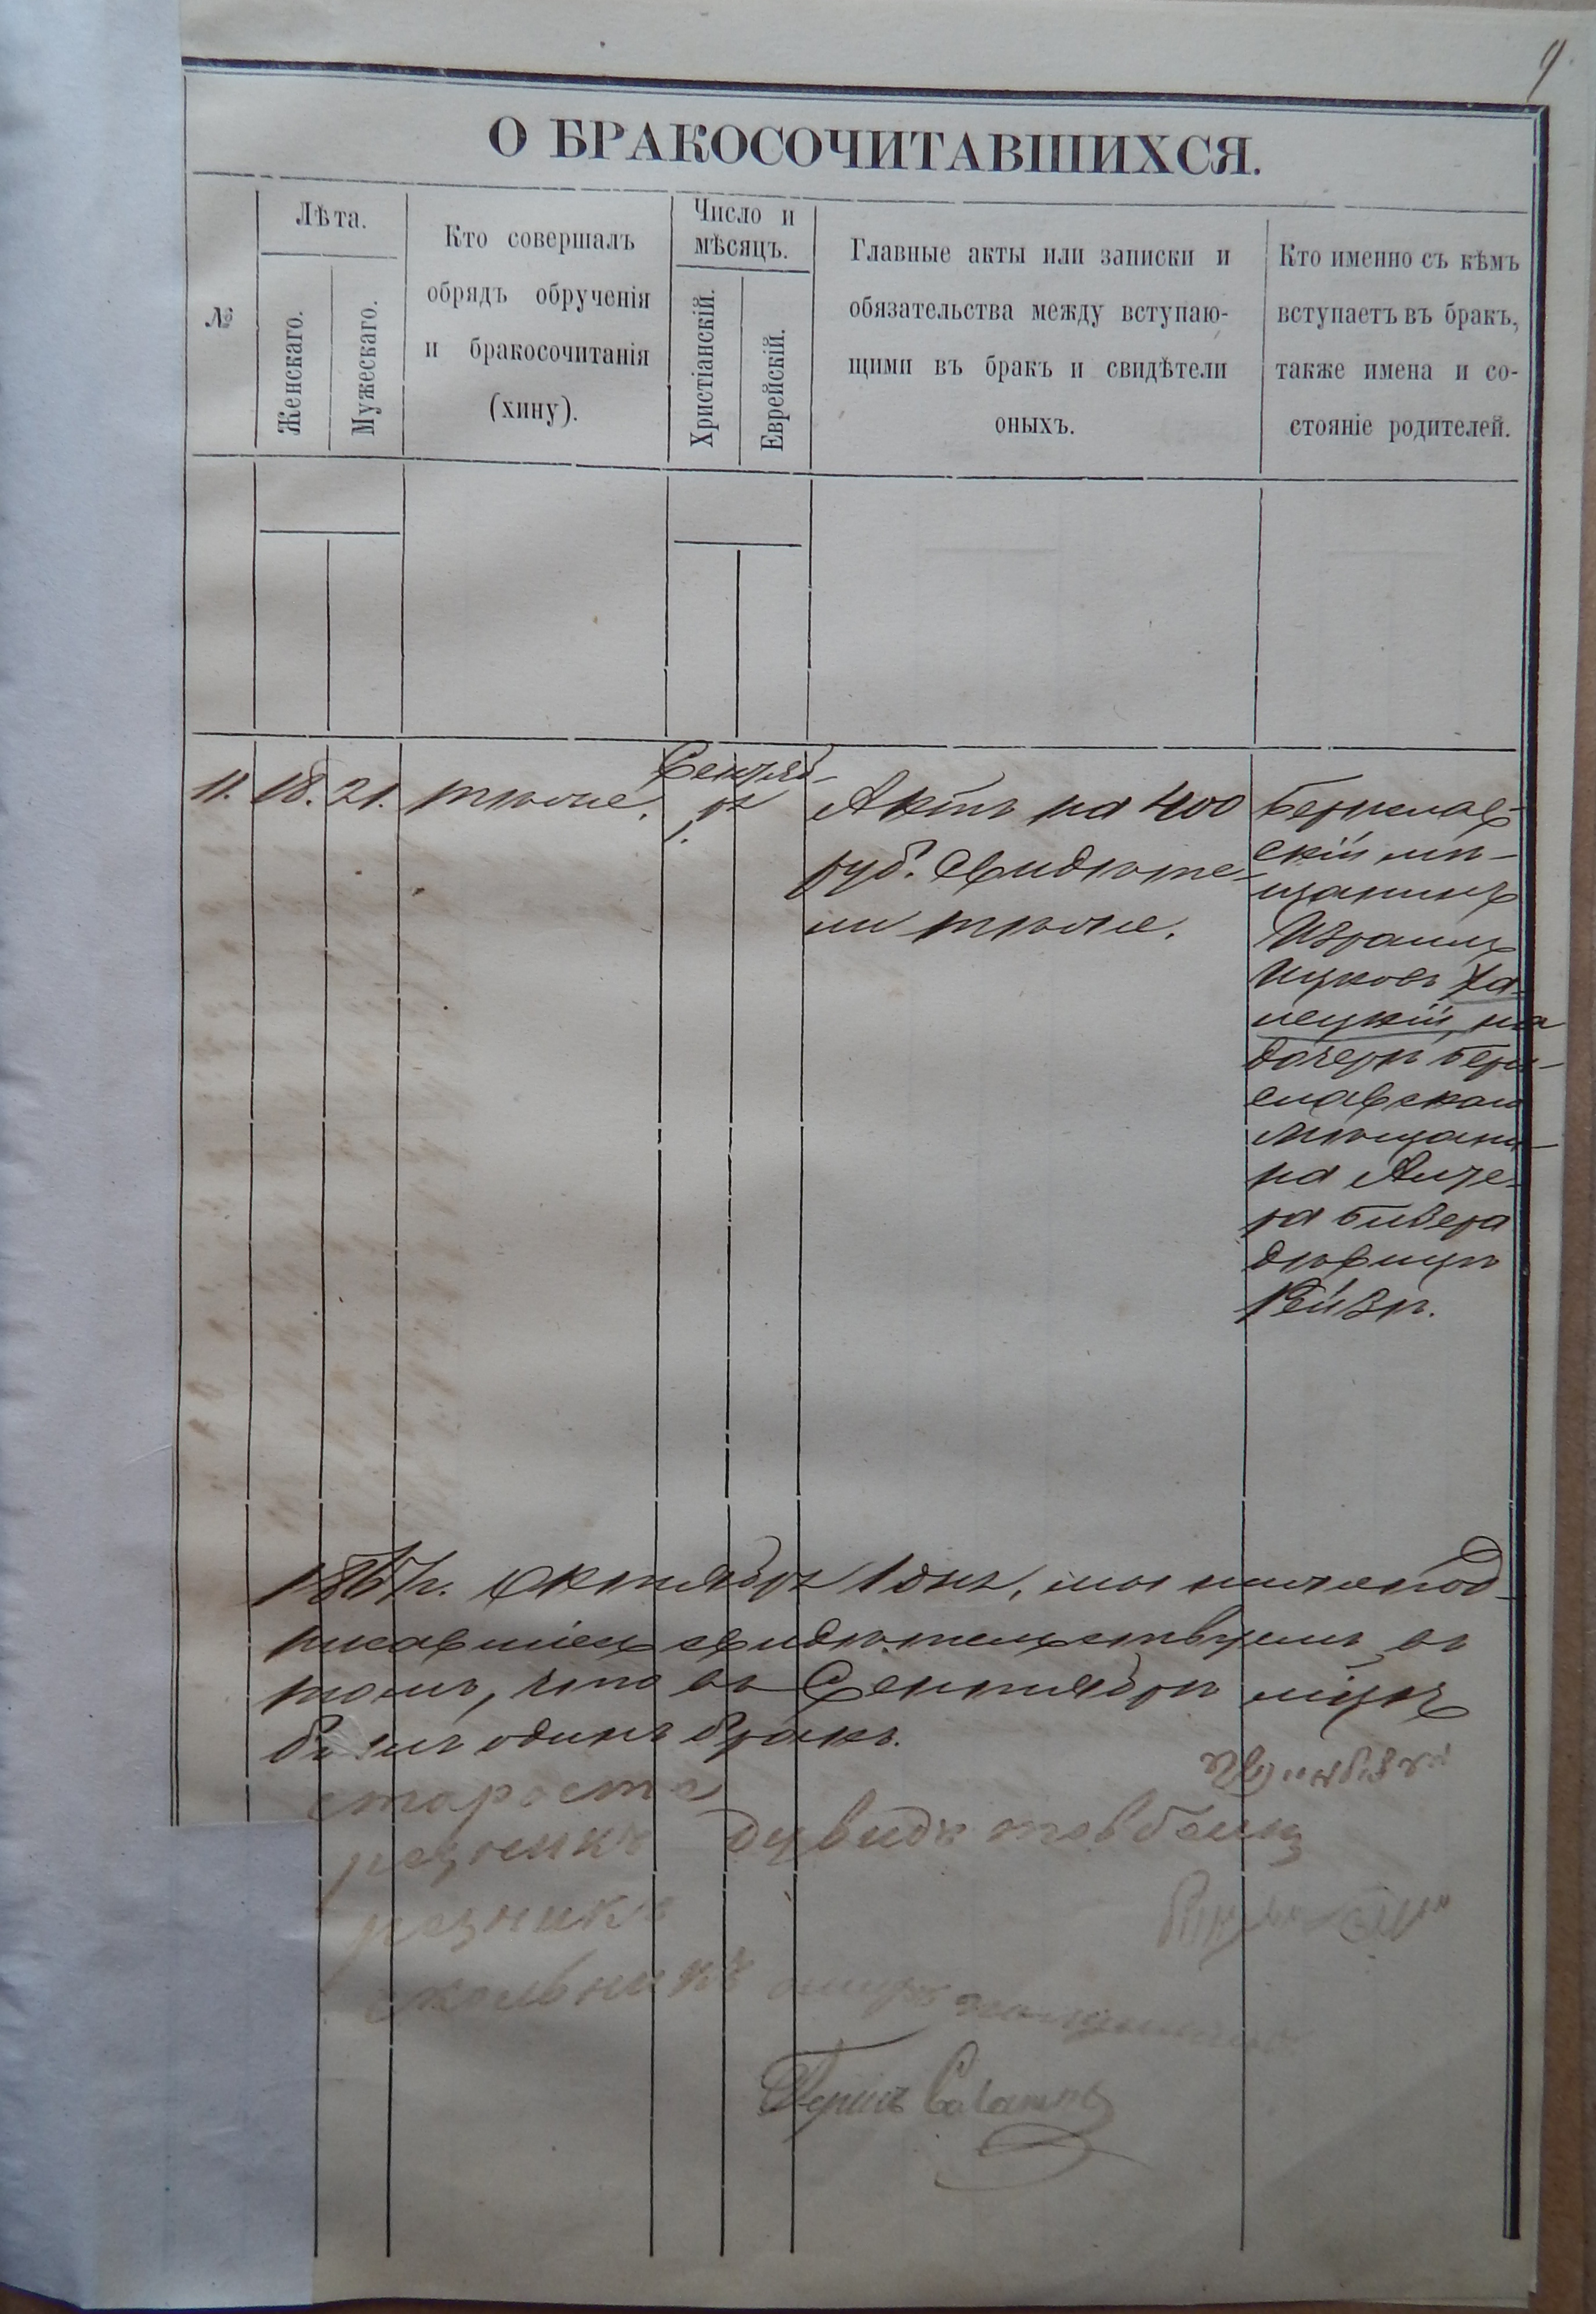 О БРАКОСОЧИТАВШИХСЯ.
№
Лѣта.
Женскаго.
Мужескаго.
Кто совершалъ
обрядъ обрученія
и бракосочитанія
(хину).
Число и
мѣсяцъ.
Христіанскій.
Еврейскій.
Главные акты или записки и
обязательства между вступаю-
щими въ бракъ и свидѣтели
оныхъ.
Кто именно съ кѣмъ
вступаетъ въ бракъ,
также имена и со-
стояніе родителей.
11.
18.
21.
тѣже.
Сентяб-
ря
1.
Актъ на 400
руб. Свидѣте-
ли тѣже.
Бериславскій
мѣ-
щанинъ
Израиль
Ицковъ Ха-
нецкій, на
дочери Бери-
славскаго
мѣщани-
на Алте-
ра Бивера
дѣвицѣ
Рейзѣ.
1867г. Октября 1 дня, мы нижепод-
писавшіеся свидѣтельствуемъ въ
томъ, что въ Сентябрѣ мѣцѣ
былъ одинъ бракъ.
староста
резникъ
резникъ
школьникъ